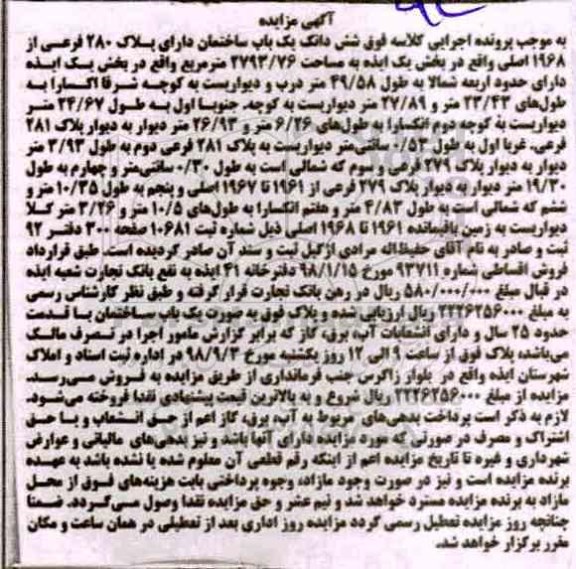 آگهی مزایده
به موجب پرونده اجرایی کلاسه فوق شش دانگ یک باب ساختمان دارای پلاک ۲۸۰ فرعی از
۱۹۶۸ اصلی واقع در بخش یک ایذه به مساحت ۲۷۹۳/۷۶ مترمربع واقع در بخش یک ایذه
دارای حدود اربعه شمالا به طول ۴۹/۵۸ متر درب و دیواریست به کوچه شرقا انکسارا به
طول‌های ۲۳/۴۳ متر و ۲۷/۸۹ متر دیواریست به کوچه. جنوبا اول به طول ۲۴/۶۷ متر
دیواریست به کوچه دوم انکسارا به طول‌های ۶/۲۶ متر و ۲۶/۹۳ متر دیوار به دیوار پلاک ۲۸۱
فرعی. غربا اول به طول ۰/۵۳ سانتی‌متر دیواریست به پلاک ۲۸۱ فرعی دوم به طول ۳/۹۳ متر
دیوار به دیوار پلاک ۲۷۹ فرعی و سوم که شمالی است به طول ۰/۳۰ سانتی‌متر و چهارم به طول
۱۹/۳۰ متر دیوار به دیوار پلاک ۲۷۹ فرعی از ۱۹۶۱ تا ۱۹۶۷ اصلی و پنجم به طول ۱۰/۳۵ متر و
ششم که شمالی است به طول ۴/۸۳ متر و هفتم انکسارا به طول‌های ۱۰/۵ متر و ۳/۲۶ متر کلا
دیواریست به زمین باقیمانده ۱۹۶۱ تا ۱۹۶۸ اصلی ذیل شماره ثبت ۱۰۶۸۱ صفحه ۳۰۰ دفتر ۹۲
ثبت و صادر به نام آقای حفیظ‌اله مرادی ازگیل ثبت و سند آن صادر گردیده است. طبق قرارداد
فروش اقساطی شماره ۹۳۷۱۱ مورخ ۹۸/۱/۱۵ دفترخانه ۴۱ ایذه به نفع بانک تجارت شعبه ایذه
در قبال مبلغ ۵۸۰/۰۰۰/۰۰۰ ریال در رهن بانک تجارت قرار گرفته و طبق نظر کارشناس رسمی
به مبلغ ۲۲۲۶۲۵۶۰۰۰ ریال ارزیابی شده و پلاک فوق به صورت یک باب ساختمان با قدمت
حدود ۲۵ سال و دارای انشعابات آب، برق، گاز که برابر گزارش مامور اجرا در تصرف مالک
می‌باشد، پلاک فوق از ساعت ۹ الی ۱۲ روز یکشنبه مورخ ۹۸/۹/۳ در اداره ثبت اسناد و املاک
شهرستان ایذه واقع در بلوار زاگرس جنب فرمانداری از طریق مزایده به فروش می‌رسد.
مزایده از مبلغ ۲۲۲۶۲۵۶۰۰۰ ریال شروع و به بالاترین قیمت پیشنهادی نقدا فروخته می‌شود.
لازم به ذکر است پرداخت بدهی‌های مربوط به آب، برق، گاز اعم از حق انشعاب و یا حق
اشتراک و مصرف در صورتی که مورد مزایده دارای آنها باشد و نیز بدهی‌های مالیاتی و عوارض
شهرداری و غیره تا تاریخ مزایده اعم از اینکه رقم قطعی آن معلوم شده یا نشده باشد به عهده
برنده مزایده است و نیز در صورت وجود مازاد، وجوه پرداختی بابت هزینه‌های فوق از محل
مازاد به برنده مزایده مسترد خواهد شد و نیم عشر و حق مزایده نقدا وصول می‌گردد. ضمنا
چنانچه روز مزایده تعطیل رسمی گردد مزایده روز اداری بعد از تعطیلی در همان ساعت و مکان
مقرر برگزار خواهد شد.